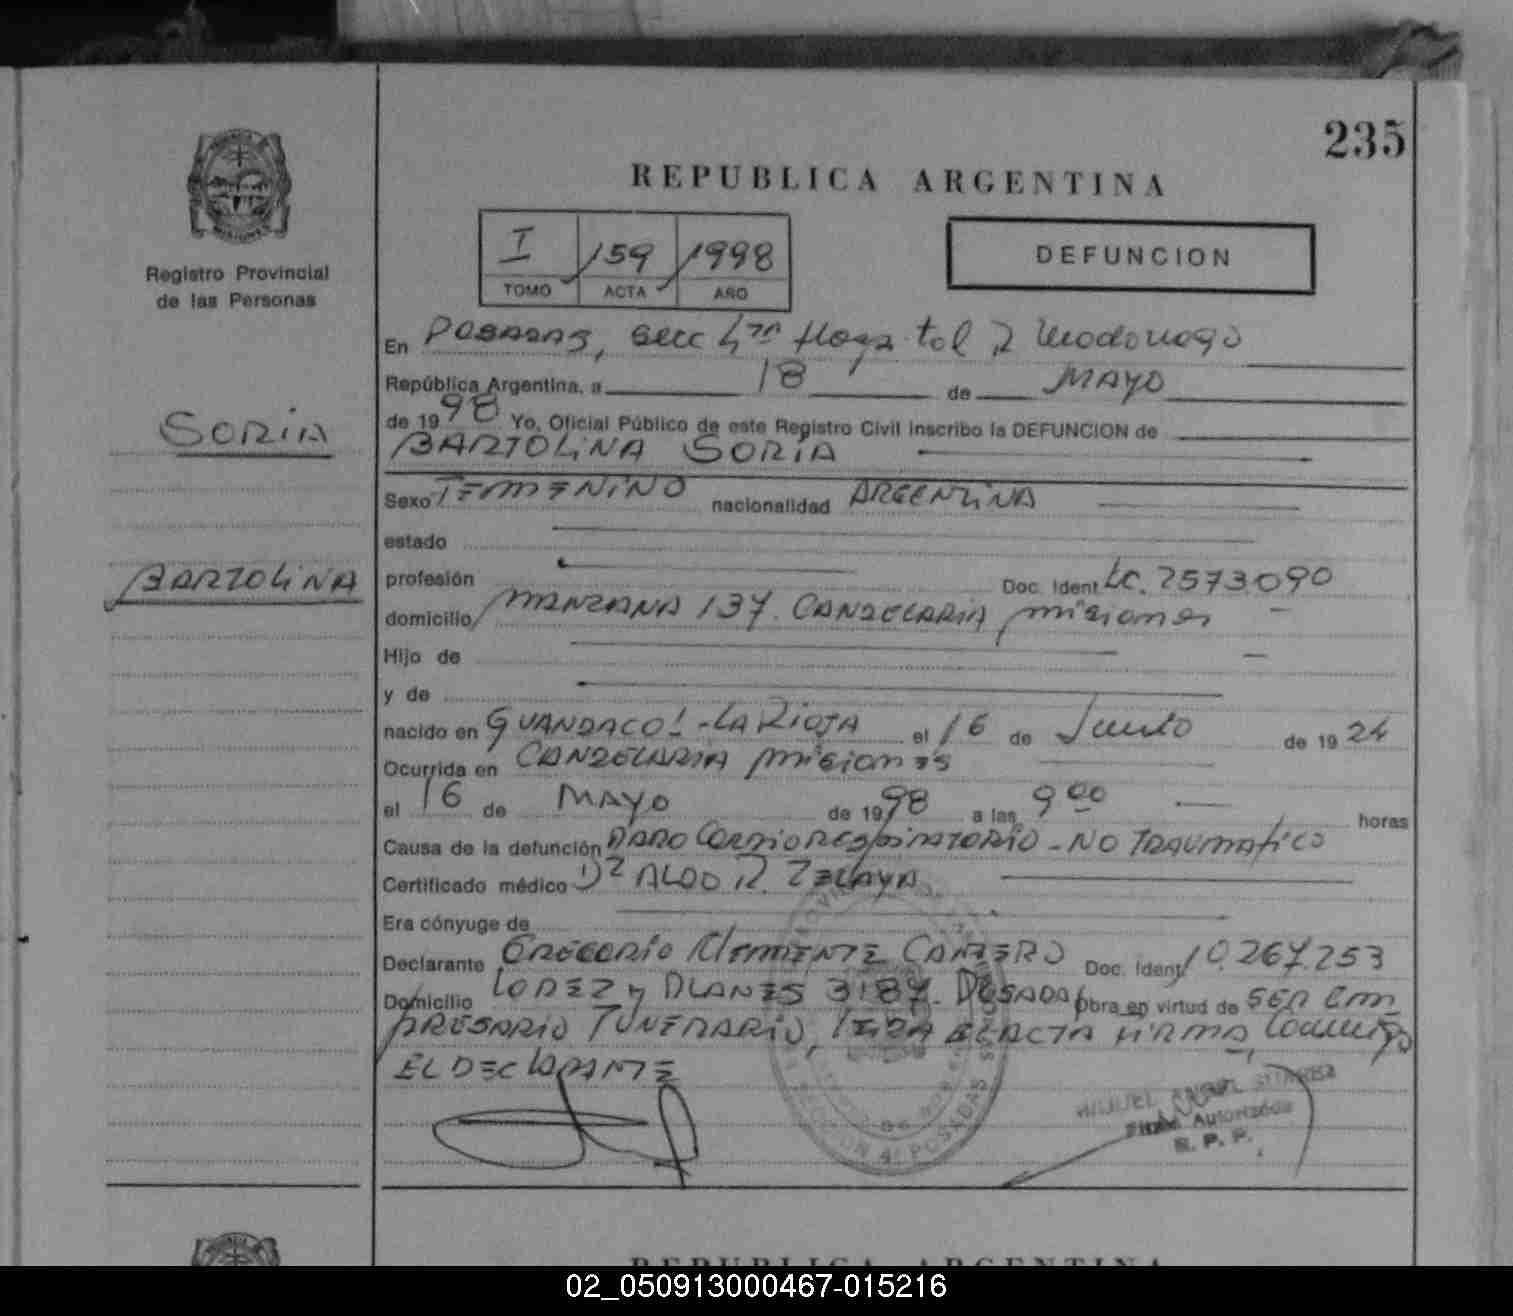 235
REPUBLICA ARGENTINA
Registro Provincial
de las Personas
I 159 1998
TOMO ACTA AÑO
DEFUNCION
En POSADAS, Secc 4ta
República Argentina, a 18 de MAYO
de 1998 Yo, Oficial Público de este Registro Civil inscribo la DEFUNCION de
SORIA
BARTOLINA SORIA
Sexo FEMENINO nacionalidad ARGENTINA
estado
BARTOLINA
profesión Doc. Ident. LC. 2573090
domicilio MANZANA 137. CANDELARIA Misiones
Hijo de
y de
nacido en GUANDACOL - LA RIOJA el 16 de Junio de 1924
Ocurrida en CANDELARIA Misiones
el 16 de MAYO de 1998 a las 9 00 horas
Causa de la defunción PARO CARDIORESPIRATORIO - NO TRAUMATICO
Certificado médico Dr ALDO R. ZELAYA
Era cónyuge de
Declarante GREGORIO KLEMENTE Doc. Ident. 10.267.253
Domicilio LOPEZ y PLANES 3187. POSADAS Obra en virtud de SER EM
PRESARIO FUNERARIO, LEIDA EL ACTA FIRMA, Conmigo
EL DECLARANTE
SECCION 4a POSADAS
MIGUEL ANGEL
Firma Autorizada
R. P. P.
REPUBLICA ARGENTINA
02_050913000467-015216